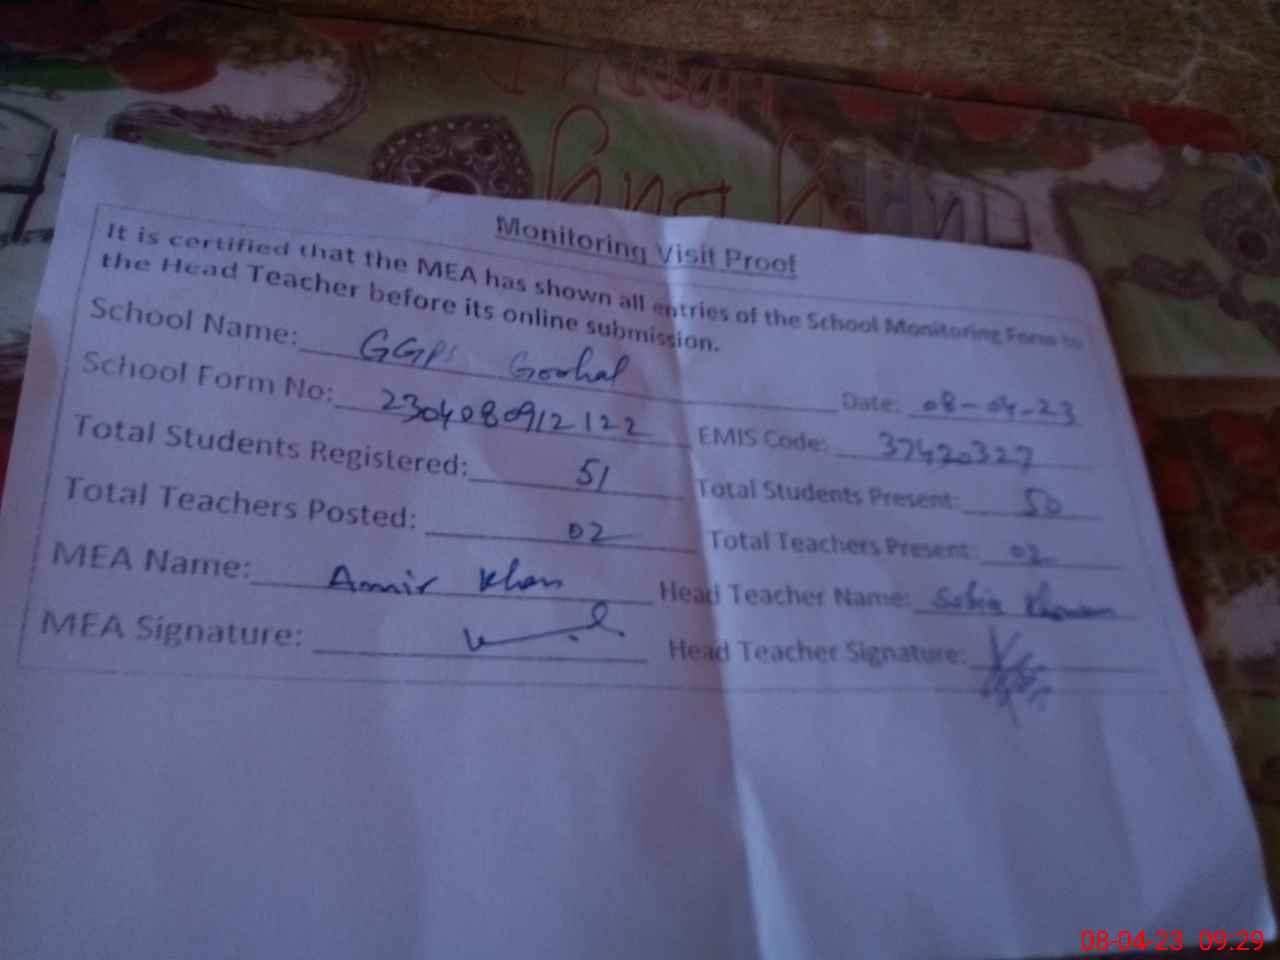 Monitoring Visit Proof
It is certified that the MEA has shown all entries of the School Monitoring Form to
the Head Teacher before its online submission.
School Name: GGPS Goohal Date: 08-04-23
School Form No: 2304080912122 EMIS Code: 37420327
Total Students Registered: 51 Total Students Present: 50
Total Teachers Posted: 02 Total Teachers Present: 02
MEA Name: Aamir Khan Head Teacher Name: Sobia
MEA Signature: Head Teacher Signature:
08-04-23 09:29